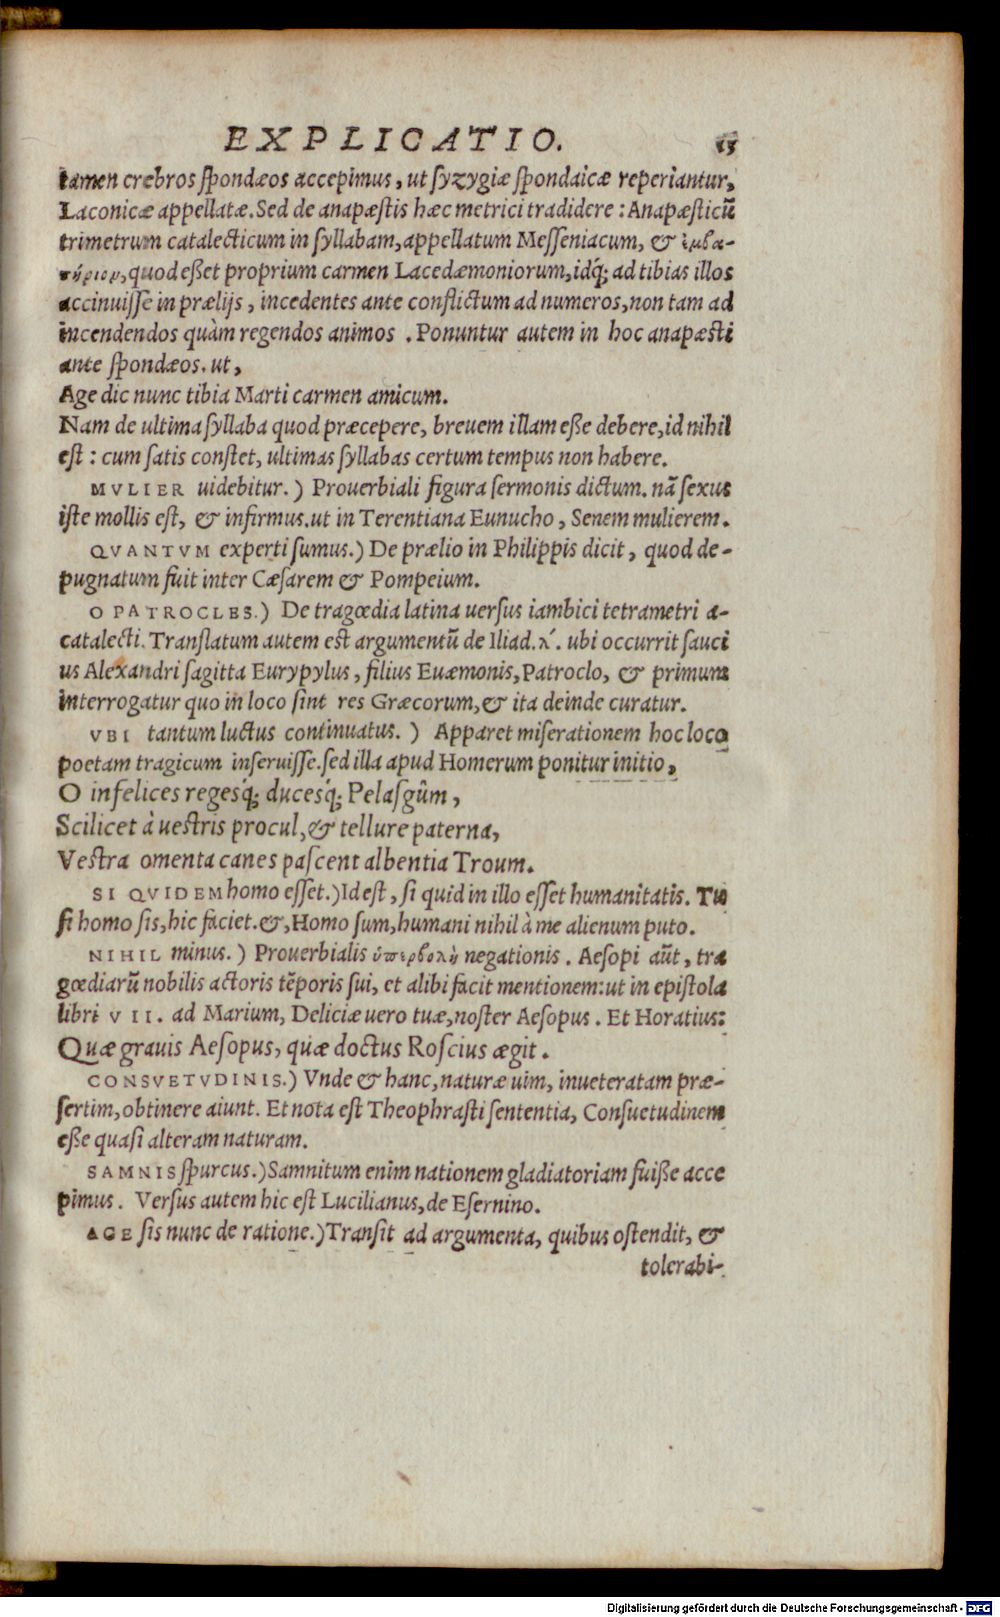 EXPLICATIO. 15
tamen crebros spondæos accepimus, ut syzygiæ spondaicæ reperiantur,
Laconicæ appellatæ. Sed de anapæstis hæc metrici tradidere: Anapæsticũ
trimetrum catalecticum in syllabam, appellatum Messeniacum, & ἐμβα-
τήριον, quod eßet proprium carmen Lacedæmoniorum, idq́; ad tibias illos
accinuisse in prælijs, incedentes ante conflictum ad numeros, non tam ad
incendendos quàm regendos animos. Ponuntur autem in hoc anapæsti
ante spondæos. ut,
Age dic nunc tibia Marti carmen amicum.
Nam de ultima syllaba quod præcepere, breuem illam eße debere, id nihil
est: cum satis constet, ultimas syllabas certum tempus non habere.
MVLIER uidebitur.) Prouerbiali figura sermonis dictum. nã sexus
iste mollis est, & infirmus. ut in Terentiana Eunucho, Senem mulierem.
QVANTVM experti sumus.) De prælio in Philippis dicit, quod de-
pugnatum fuit inter Cæsarem & Pompeium.
O PATROCLES.) De tragœdia latina uersus iambici tetrametri a-
catalecti. Translatum autem est argumentũ de Iliad. λ´. ubi occurrit sauci
us Alexandri sagitta Eurypylus, filius Euæmonis, Patroclo, & primum
interrogatur quo in loco sint res Græcorum, & ita deinde curatur.
VBI tantum luctus continuatus.) Apparet miserationem hoc loco
poetam tragicum inseruisse. sed illa apud Homerum ponitur initio,
O infelices regesq́; ducesq́; Pelasgûm,
Scilicet à uestris procul, & tellure paterna,
Vestra omenta canes pascent albentia Troum.
SI QVIDEM homo esset.) Id est, si quid in illo esset humanitatis. Tu
si homo sis, hic faciet. &, Homo sum, humani nihil à me alienum puto.
NIHIL minus.) Prouerbialis ὑπερβολὴ negationis. Aesopi aũt, tra
gœdiarũ nobilis actoris tẽporis sui, et alibi facit mentionem: ut in epistola
libri VII. ad Marium, Deliciæ uero tuæ, noster Aesopus. Et Horatius:
Quæ grauis Aesopus, quæ doctus Roscius ægit.
CONSVETVDINIS.) Vnde & hanc, naturæ uim, inueteratam præ-
sertim, obtinere aiunt. Et nota est Theophrasti sententia, Consuetudinem
eße quasi alteram naturam.
SAMNIS spurcus.) Samnitum enim nationem gladiatoriam fuiße acce
pimus. Versus autem hic est Lucilianus, de Esernino.
AGE sis nunc de ratione.) Transit ad argumenta, quibus ostendit, &
tolerabi-
Digitalisierung gefördert durch die Deutsche Forschungsgemeinschaft - DFG